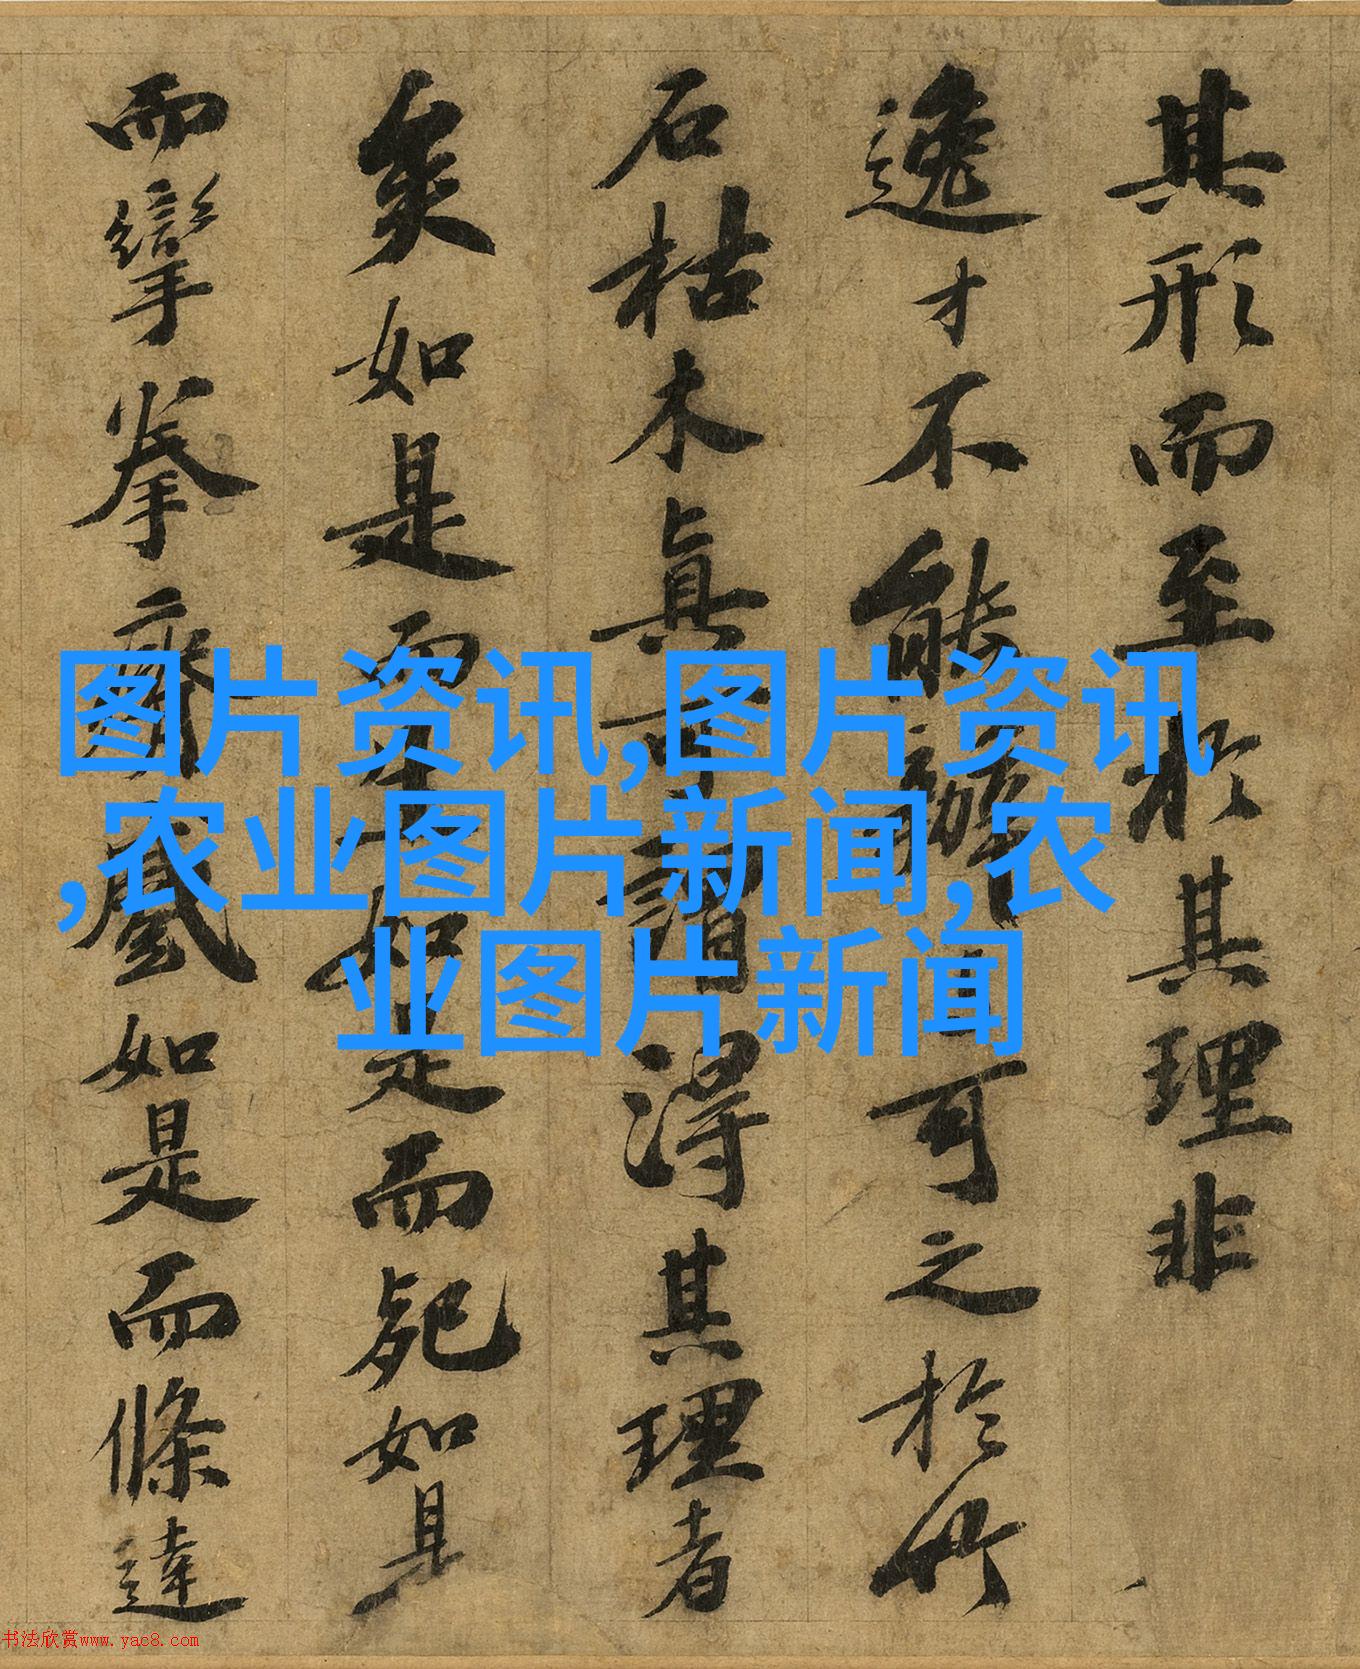 其形而至於其理非
逸才不能辦可之於竹
石枯木真可謂得其理者
矣如是而生如是而死如是
而攣拳瘠蹙如是而條達
图片资讯,图片资讯
,农业图片新闻,农
业图片新闻
书法欣赏www.yac8.com